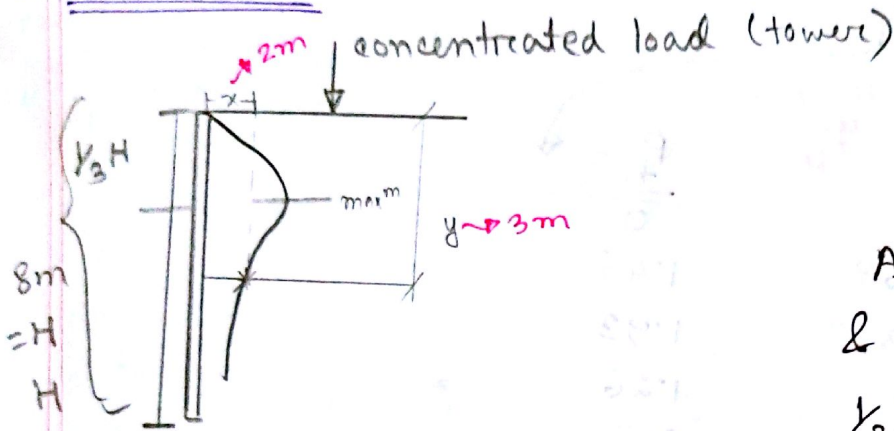 concentrated load (tower)
2m
x
1/3 H
max^m
y → 3m
8m
= H
H
A
&